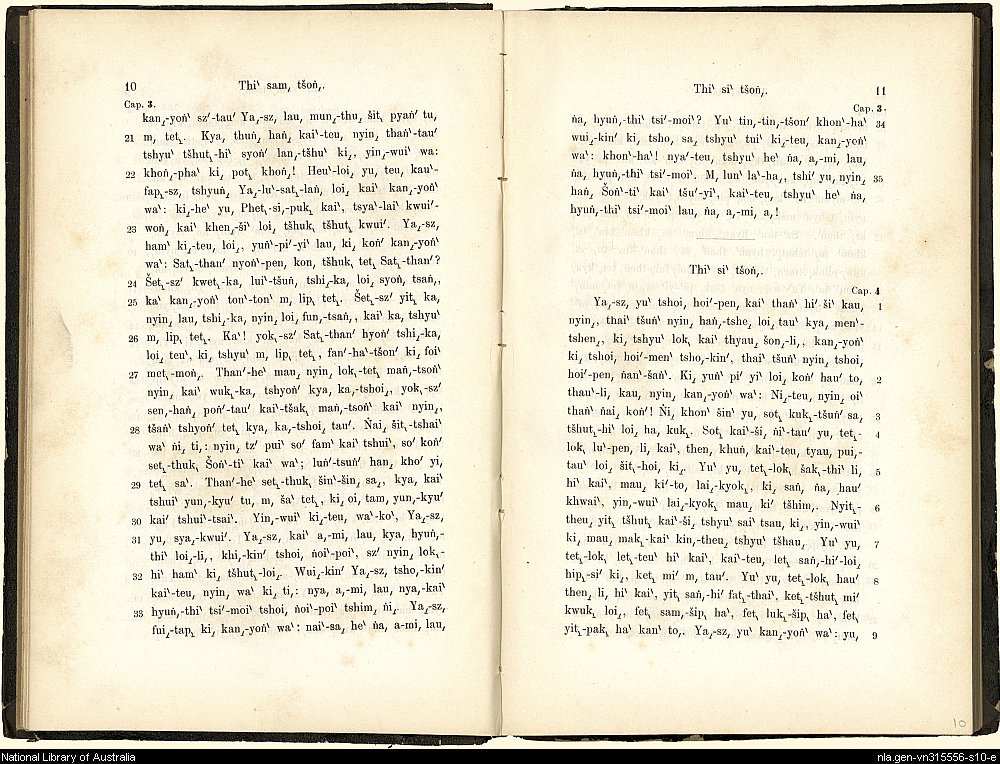 10 Thiˋ sam, tšoṅ,.
Cap. 3.
kan,-yoṅˋ szʼ-tauʼ Ya,-sz, lau, mun,-thu, šit, pyaṅʼ tu,
21 m, tet,. Kya, thuṅ, haṅ, kaiˋ-teu, nyin, thaṅˋ-tauʼ
tshyuˋ tšhut,-hiˋ syoṅʼ lan,-tšhuˋ ki,, yin,-wuiˋ wa:
22 khoṅ,-phaˋ ki, pot, khoṅ,! Heuˋ-loi, yu, teu, kauˋ-
fap,-sz, tshyuṅ, Ya,-luˋ-sat,-laṅ, loi, kaiˋ kan,-yoṅˋ
waˋ: ki,-he yu, Phet,-si,-puk, kaiˋ, tsyaˋ-lai kwuiʼ-
23 woṅ, kaiˋ khen,-šiˋ loi, tšhuk, tšhut, kwuiʼ. Ya,-sz,
hamˋ ki,-teu, loi,, yuṅˋ-piʼ-yiˋ lau, ki, koṅʼ kan,-yoṅˋ
waˋ: Sat,-thanʼ nyoṅˋ-pen, kon, tšhuk, tet, Sat,-thanʼ?
24 Šet,-szʼ kwet,-ka, luiˋ-tšuṅ, tshi,-ka, loi, syoṅ, tsaṅ,,
25 kaˋ kan,-yoṅˋ touˋ-tonˋ m, lip, tet,. Šet,-szʼ yit, ka,
nyin, lau, tshi,-ka, nyin, loi, fun,-tsaṅ,, kaiˋ ka, tshyuˋ
26 m, lip, tet,. Kaˋ! yok,-szʼ Sat,-thanʼ hyoṅʼ tshi,-ka,
loi, teuˋ, ki, tshyuˋ m, lip, tet,, fan,ʼ-haˋ-tšonʼ ki, foi
27 met,-moṅ,. Thanʼ-heˋ mau, nyin, lok,-tet, maṅ,-tsoṅˋ
nyin, kaiˋ wuk,-ka, tshyoṅʼ kya, ka,-tshoi,, yok,-szʼ
sen,-haṅ, poṅʼ-tauʼ kaiˋ-tšak, maṅ,-tsoṅˋ kaiˋ nyin,,
28 tšaṅˋ tshyoṅʼ tet, kya, ka,-tshoi, tauʼ. Ṅai, šit,-tshaiˋ
waˋ ṅi, ti,: nyin, tzʼ puiˋ soʼ famˋ kaiˋ tshuiˋ, soʼ koṅʼ
set,-thuk, Šoṅˋ-tiˋ kaiˋ waˋ; luṅʼ-tsuṅʼ han, khoʼ yi,
29 tet, saˋ. Thanʼ-heˋ set,-thuk, šinˋ-šin, sa,, kya, kaiˋ
tshui yun,-kyuʼ tu, m, šaˋ tet,, ki, oi, tam, yun,-kyuʼ
30 kaiʼ tshuiˋ-tsaiˋ. Yin,-wuiˋ ki,-teu, waˋ-koˋ, Ya,-sz,
31 yu, sya,-kwuiʼ. Ya,-sz, kaiˋ a,-mi, lau, kya, hyuṅ,-
thiˋ loi,-li,, khi,-kinʼ tshoi, ṅoiˋ-poiˋ, szʼ nyin, lok,-
32 hiˋ hamˋ ki, tšhut,-loi,. Wui,-kinʼ Ya,-sz, tsho,-kinʼ
kaiˋ-teu, nyin, waˋ ki, ti,: nya, a,-mi, lau, nya,-kaiˋ
33 hyuṅ,-thiˋ tsiʼ-moiˋ tshoi, ṅoiˋ-poiˋ tshim, ṅi,. Ya,-sz,
fui,-tap, ki, kan,-yoṅˋ waˋ: naiˋ-sa, heˋ ṅa, a-mi, lau,
Thiˋ siˋ tšoṅ,. 11
Cap. 3.
ṅa, hyuṅ,-thiˋ tsiʼ-moiˋ? Yuˋ tin,-tin,-tšonʼ khon,ˋ-haˋ 34
wui,-kinʼ ki, tsho, sa, tshyuˋ tuiˋ ki,-teu, kan,-yoṅˋ
waˋ: khonˋ-haˋ! nyaʼ-teu, tshyuˋ heˋ ṅa, a,-mi, lau,
ṅa, hyuṅ,-thiˋ tsiʼ-moiˋ. M, lunˋ laˋ-ha,, tshiʼ yu, nyin, 35
haṅ, Šoṅˋ-tiˋ kaiˋ tšuʼ-yiˋ, kaiˋ-teu, tshyuˋ heˋ ṅa,
hyuṅ,-thiˋ tsiʼ-moiˋ lau, ṅa, a,-mi, a,!
Thiˋ siˋ tšoṅ,.
Cap. 4
Ya,-sz, yuˋ tshoi, hoiʼ-pen, kaiˋ thaṅˋ hiʼ šiˋ kau, 1
nyin,, thaiˋ tšuṅˋ nyin, haṅ,-tshe, loi, tauˋ kya, menˋ-
tshen,, ki, tshyuˋ lok, kaiˋ thyau, šon,-li,, kan,-yoṅˋ
ki, tshoi, hoiʼ-men, tsho,-kinʼ, thaiˋ tšuṅˋ nyin, tshoi,
hoiʼ-pen, ṅanˋ-šaṅˋ. Ki, yuṅˋ piʼ yiˋ loi, koṅʼ hauʼ to, 2
thauˋ-li, kau, nyin, kan,-yoṅˋ waˋ: Ni,-teu, nyin, oiˋ
thaṅˋ ṅai, koṅʼ! Ṅi, khonˋ šinˋ yu, sot, kuk,-tšuṅʼ sa, 3
tšhut,-hiˋ loi, ha, kuk,. Sot, kaiˋ-ši, ṅiˋ-tauʼ yu, tet,- 4
lok, luˋ-pen, li, kaiˋ, then, khuṅ, kaiˋ-teu, tyau, pui,-
tauʼ loi, šit,-hoi, ki,. Yuˋ yu, tet,-lok, šak,-thiˋ li, 5
hiˋ kaiˋ, mau, kiʼ-to, lai,-kyok,, ki, saṅ, ṅa, hauʼ
khwaiˋ, yin,-wuiˋ lai,-kyok, mau, kiʼ tšhim,. Nyit,- 6
theu, yit, tšhut, kaiˋ-ši, tshyuˋ saiˋ tsau, ki,, yin,-wuiˋ
ki, mau, mak,-kaiˋ kin,-theu, tshyuˋ tšhau,. Yuˋ yu, 7
tet,-lok, let,-teuˋ hiˋ kaiˋ, kaiˋ-teu, let, saṅ,-hiʼ-loi,
hip,-siʼ ki,, ket, miʼ m, tauʼ. Yuˋ yu, tet,-lok, hauʼ 8
then, li, hiˋ kaiˋ, yit, saṅ,-hiʼ fat,-thaiˋ, ket,-tšhut, miʼ
kwuk, loi,, fet, sam,-šip, haˋ, fet, luk,-šip, haˋ, fet,
yit,-pak, haˋ kanˋ to,. Ya,-sz, yuˋ kan,-yoṅˋ waˋ: yu, 9
10
National Library of Australia
nla.gen-vn315556-s10-e